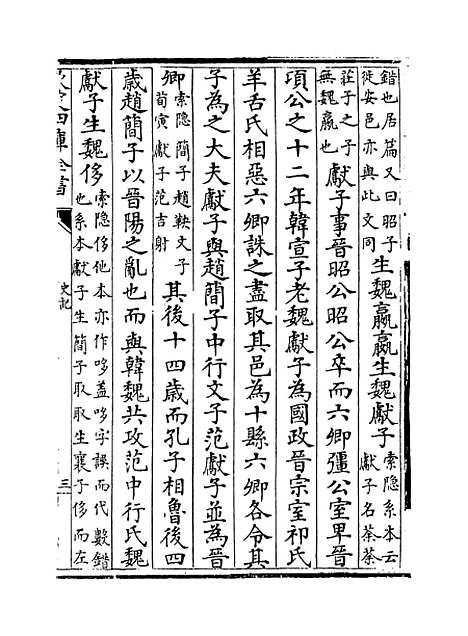 錯也居篇又曰昭子
徙安邑亦與此文同
生魏嬴嬴生魏獻子
索隠系本云
獻子名荼荼
莊子之子
無魏嬴也
獻子事晉昭公昭公卒而六卿彊公室卑晉
項公之十二年韓宣子老魏獻子為國政晉宗室祁氏
羊舌氏相惡六卿誅之盡取其邑為十縣六卿各令其
子為之大夫獻子與趙簡子中行文子范獻子並為晉
卿
索隠簡子趙鞅文子
荀寅獻子范吉射
其後十四歲而孔子相魯後四
歲趙簡子以晉陽之亂也而與韓魏共攻范中行氏魏
獻子生魏侈
索隠侈他本亦作哆葢哆字誤而代數錯
也系本獻子生簡子取取生襄子侈而左
四庫全書
史記
三